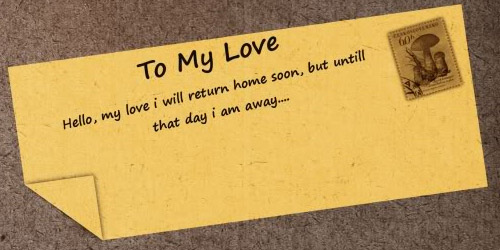 To My Love
Hello, my love i will return home soon, but untill
that day i am away....
60h